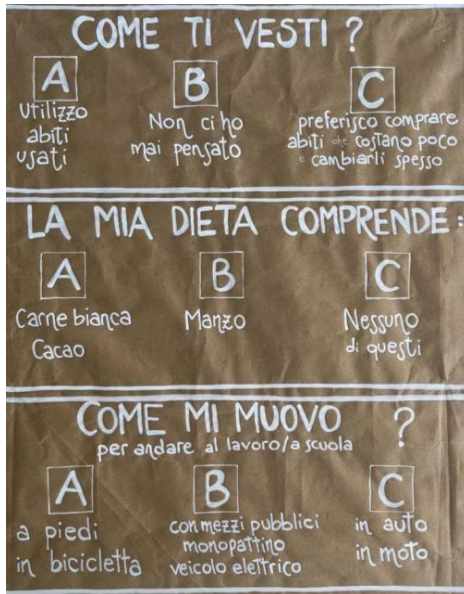 COME TI VESTI ?
A B C
utilizzo
abiti
usati
Non ci ho
mai pensato
preferisco comprare
abiti che costano poco
e cambiarli spesso
LA MIA DIETA COMPRENDE:
A B C
Carne bianca
Cacao
Manzo
Nessuno
di questi
COME MI MUOVO ?
per andare al lavoro/a scuola
A B C
a piedi
in bicicletta
con mezzi pubblici
monopattino
veicolo elettrico
in auto
in moto